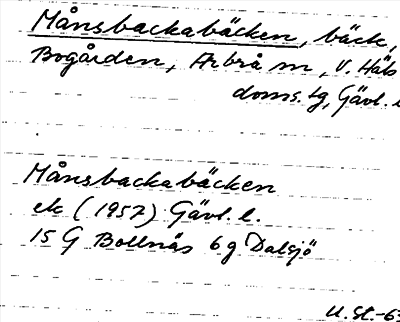 Månsbackabäcken, bäck,
Bogården, Arbrå sn, V. Häls
doms. tg, Gävl. l
Månsbackabäcken
ek (1957) Gävl. l.
15 G Bollnäs 6 g Dalsjö
U. St. -63